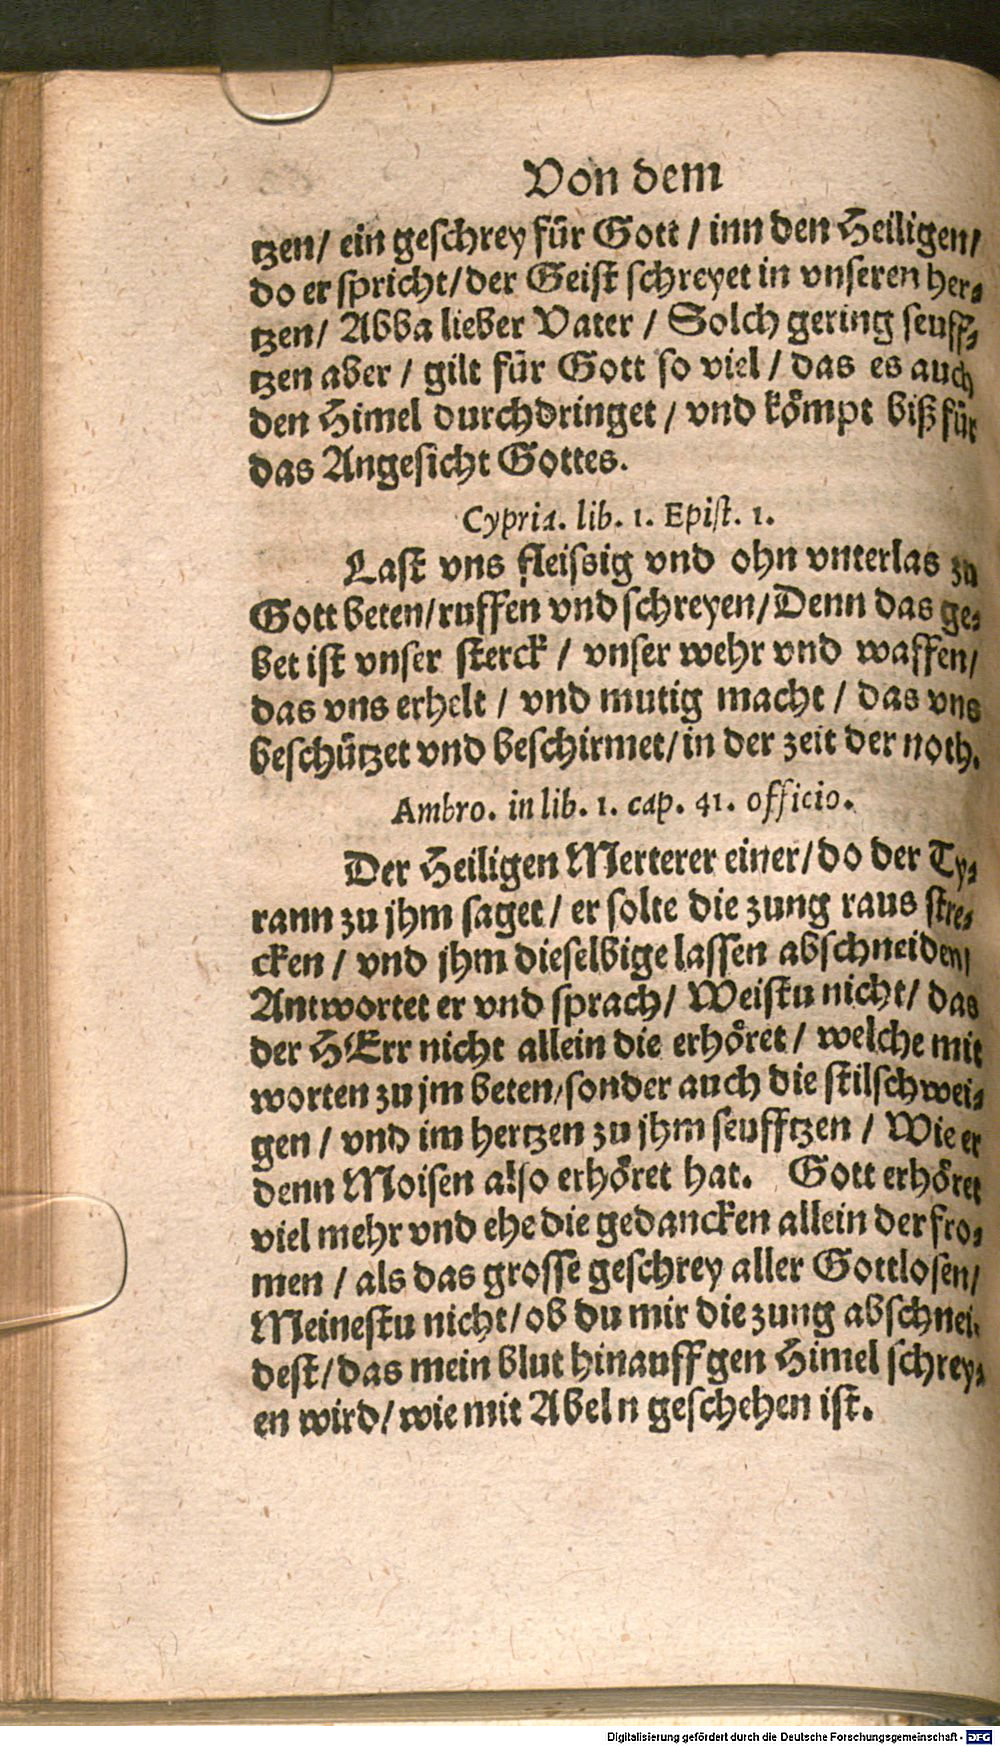 Von dem
tzen/ ein geschrey für Gott / inn den Heiligen/
do er spricht/der Geist schreyet in vnseren her⸗
tzen/ Abba lieber Vater / Solch gering seuff⸗
tzen aber / gilt für Gott so viel / das es auch
den Himel durchdringet / vnd kömpt biß für
das Angesicht Gottes.
Cypria. lib. 1. Epist. 1.
Last vns fleissig vnd ohn vnterlas zu
Gott beten/ruffen vnd schreyen/Denn das ge⸗
bet ist vnser sterck / vnser wehr vnd waffen/
das vns erhelt / vnd mutig macht / das vns
beschützet vnd beschirmet/in der zeit der noth.
Ambro. in lib. 1. cap. 41. officio.
Der Heiligen Merterer einer/do der Ty⸗
rann zu jhm saget/ er solte die zung raus stre⸗
cken / vnd jhm dieselbige lassen abschneiden/
Antwortet er vnd sprach/ Weistu nicht/ das
der HErr nicht allein die erhöret/ welche mit
worten zu jm beten/sonder auch die stilschwei⸗
gen / vnd im hertzen zu jhm seufftzen / Wie er
denn Moisen also erhöret hat. Gott erhöret
viel mehr vnd ehe die gedancken allein der fro⸗
men / als das grosse geschrey aller Gottlosen/
Meinestu nicht/ob du mir die zung abschnei⸗
dest/das mein blut hinauff gen Himel schrey⸗
en wird/wie mit Abeln geschehen ist.
Digitalisierung gefördert durch die Deutsche Forschungsgemeinschaft - DFG